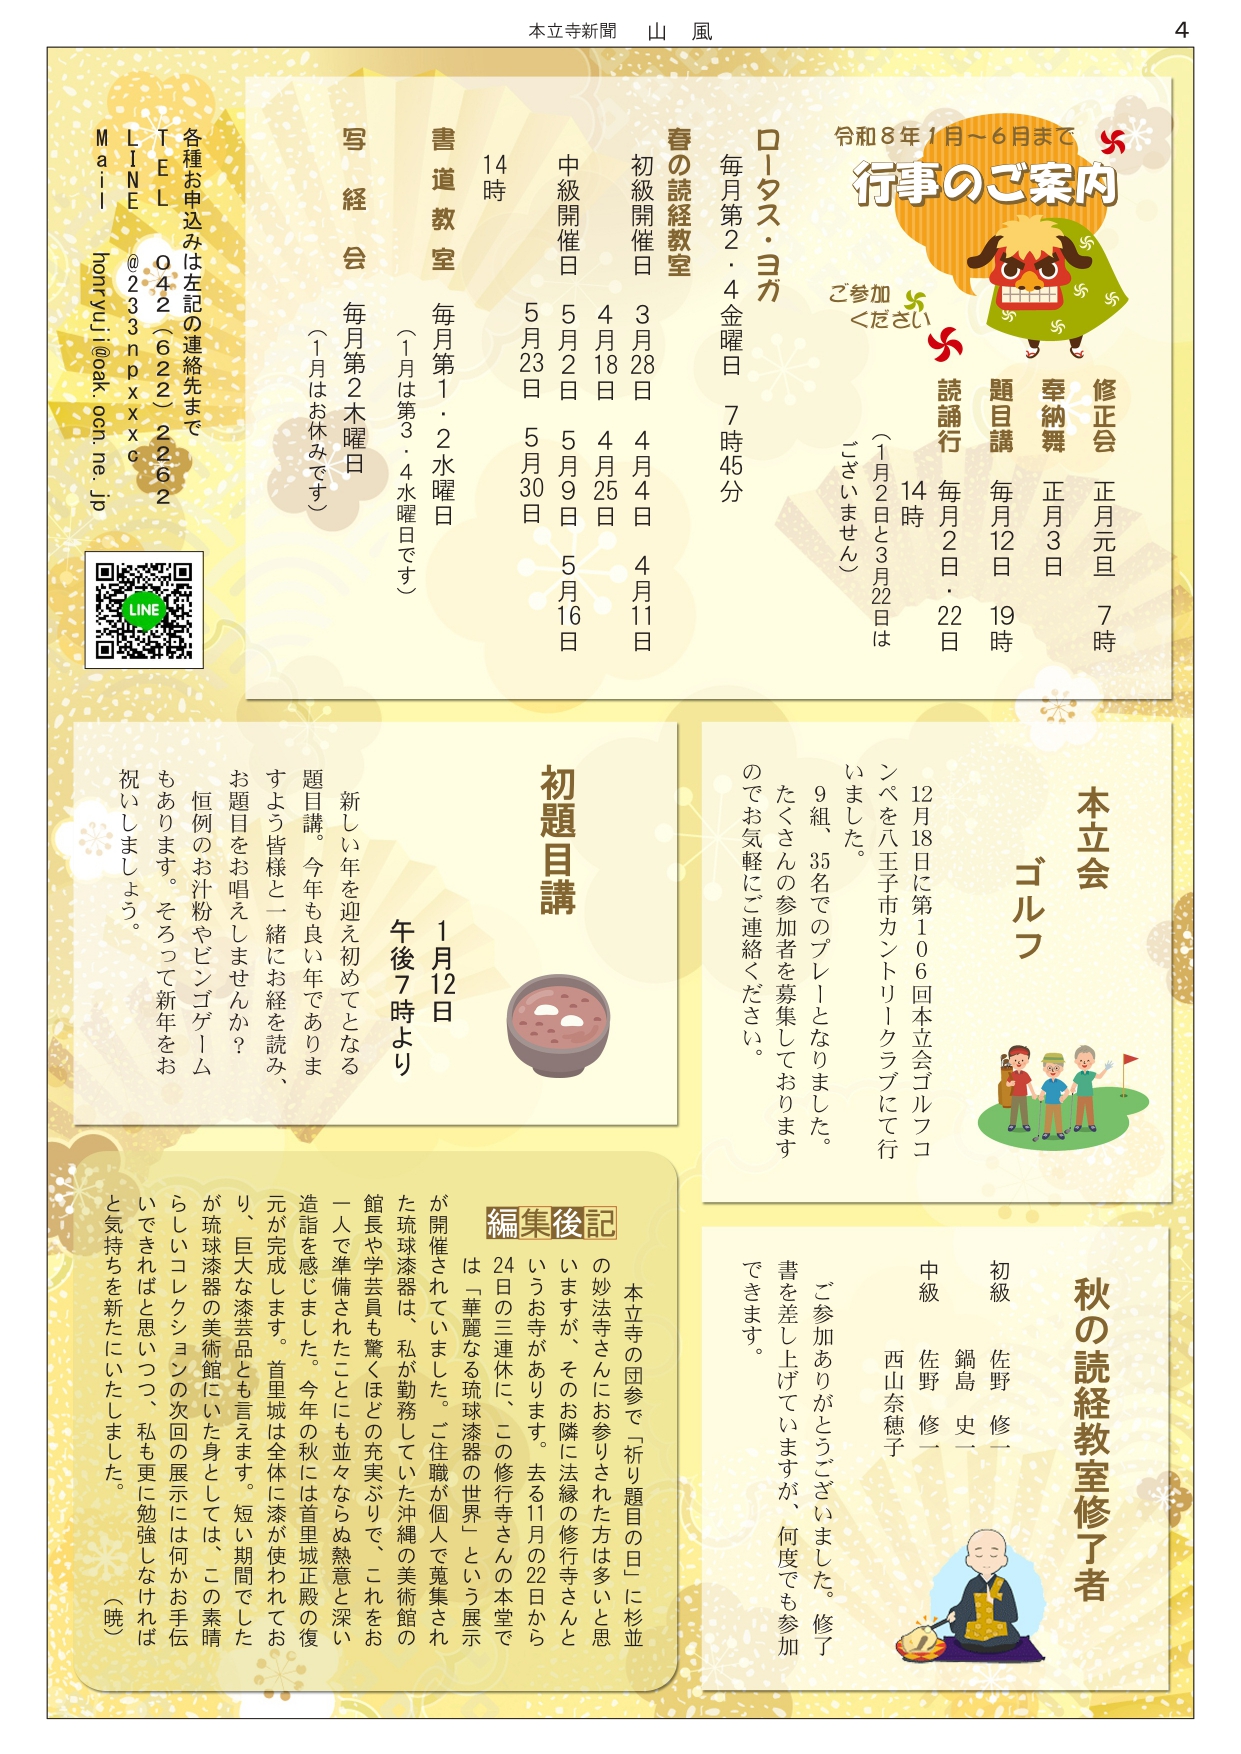 本立寺新聞　山　風
4
令和８年１月～６月まで
行事のご案内
ご参加
ください
修正会　正月元旦　７時
奉納舞　正月３日
題目講　毎月12日　19時
読誦行　毎月２日・22日
14時
（１月２日と３月22日は
ございません）
ロータス・ヨガ
毎月第２・４金曜日　７時45分
春の読経教室
初級開催日　３月28日　４月４日　４月11日
４月18日　４月25日
中級開催日　５月２日　５月９日　５月16日
５月23日　５月30日
14時
書道教室　毎月第１・２水曜日
（１月は第３・４水曜日です）
写経会　毎月第２木曜日
（１月はお休みです）
各種お申込みは左記の連絡先まで
ＴＥＬ　０４２（６２２）２２６２
ＬＩＮＥ　＠２３３ｎｐｘｘｘｃ
Ｍａｉｌ　honryuji@oak.ocn.ne.jp
LINE
本立会
ゴルフ
12月18日に第１０６回本立会ゴルフコ
ンペを八王子市カントリークラブにて行
いました。
９組、35名でのプレーとなりました。
たくさんの参加者を募集しております
のでお気軽にご連絡ください。
初題目講
１月12日
午後７時より
新しい年を迎え初めてとなる
題目講。今年も良い年でありま
すよう皆様と一緒にお経を読み、
お題目をお唱えしませんか？
恒例のお汁粉やビンゴゲーム
もあります。そろって新年をお
祝いしましょう。
秋の読経教室修了者
初級　佐野　修一
鍋島　史一
中級　佐野　修一
西山奈穂子
ご参加ありがとうございました。修了
書を差し上げていますが、何度でも参加
できます。
編集後記
本立寺の団参で「祈り題目の日」に杉並
の妙法寺さんにお参りされた方は多いと思
いますが、そのお隣に法縁の修行寺さんと
いうお寺があります。去る11月の22日から
24日の三連休に、この修行寺さんの本堂で
は「華麗なる琉球漆器の世界」という展示
が開催されていました。ご住職が個人で蒐集され
た琉球漆器は、私が勤務していた沖縄の美術館の
館長や学芸員も驚くほどの充実ぶりで、これをお
一人で準備されたことにも並々ならぬ熱意と深い
造詣を感じました。今年の秋には首里城正殿の復
元が完成します。首里城は全体に漆が使われてお
り、巨大な漆芸品とも言えます。短い期間でした
が琉球漆器の美術館にいた身としては、この素晴
らしいコレクションの次回の展示には何かお手伝
いできればと思いつつ、私も更に勉強しなければ
と気持ちを新たにいたしました。　（暁）